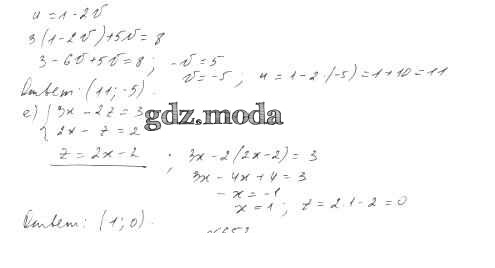 u = 1 - 2v
3(1 - 2v) + 5v = 8
3 - 6v + 5v = 8; -v = 5
v = -5; u = 1 - 2·(-5) = 1 + 10 = 11
Ответ: (11; -5).
e) { 3x - 2z = 3
2x - z = 2
gdz.moda
z = 2x - 2; 3x - 2(2x - 2) = 3
3x - 4x + 4 = 3
- x = -1
x = 1; z = 2·1 - 2 = 0
Ответ: (1; 0).